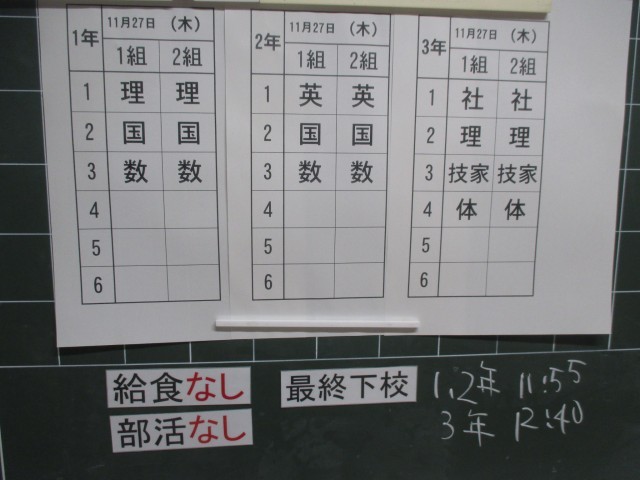 1年 11月27日 (木)
1組 2組
1 理 理
2 国 国
3 数 数
4
5
6
2年 11月27日 (木)
1組 2組
1 英 英
2 国 国
3 数 数
4
5
6
3年 11月27日 (木)
1組 2組
1 社 社
2 理 理
3 技家 技家
4 体 体
5
6
給食なし
部活なし
最終下校 1,2年 11:55
3年 12:40